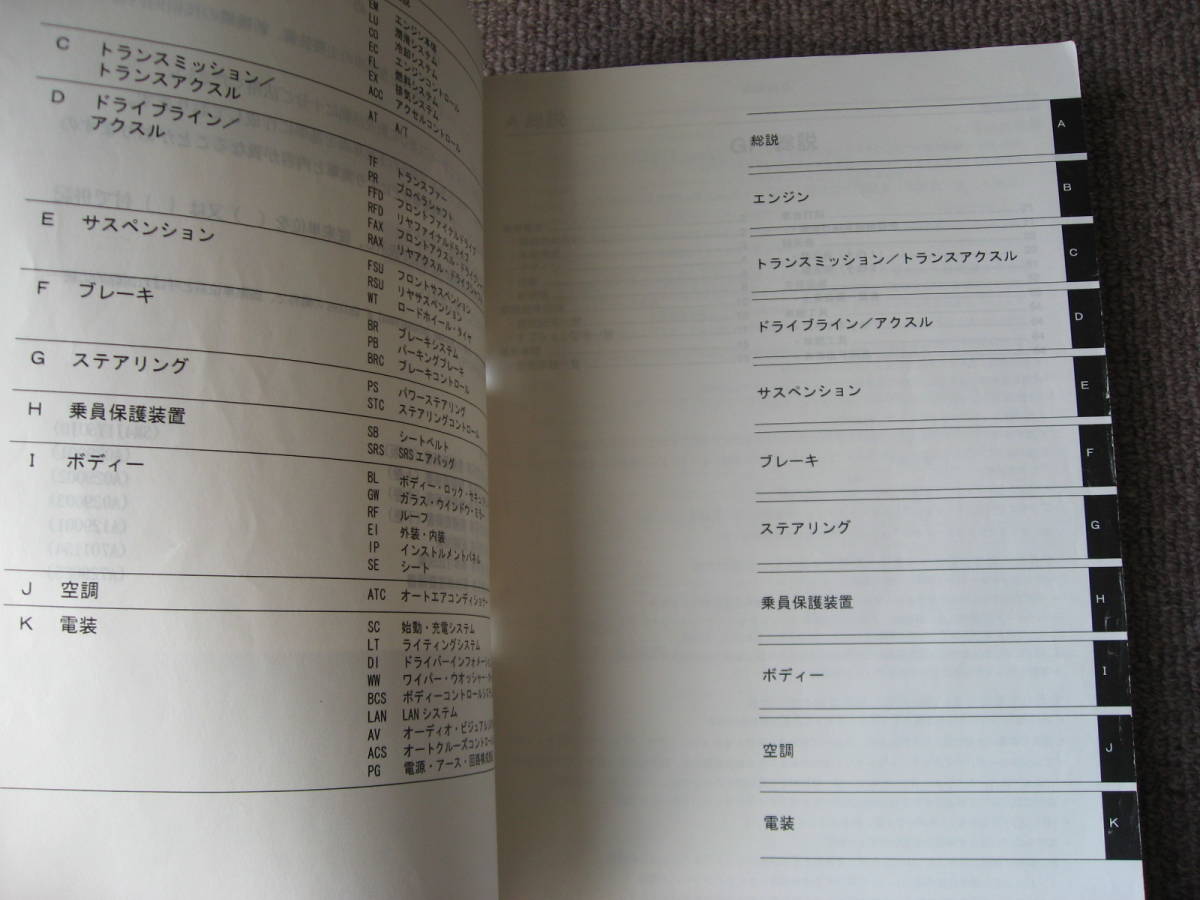 EM エンジン本体
LU 潤滑システム
CO 冷却システム
EC エンジンコントロール
FL 燃料システム
EX 排気システム
ACC アクセルコントロール
C トランスミッション／
トランスアクスル
AT A/T
D ドライブライン／
アクスル
TF トランスファー
PR プロペラシャフト
FFD フロントファイナルドライブ
RFD リヤファイナルドライブ
FAX フロントアクスル・ドライブシャフト
RAX リヤアクスル・ドライブシャフト
E サスペンション
FSU フロントサスペンション
RSU リヤサスペンション
WT ロードホイール・タイヤ
F ブレーキ
BR ブレーキシステム
PB パーキングブレーキ
BRC ブレーキコントロール
G ステアリング
PS パワーステアリング
STC ステアリングコントロール
H 乗員保護装置
SB シートベルト
SRS SRSエアバッグ
I ボディー
BL ボディー・ロック・セキュ
GW ガラス・ウインドウ・ミラー
RF ルーフ
EI 外装・内装
IP インストルメントパネル
SE シート
J 空調
ATC オートエアコンディショナー
K 電装
SC 始動・充電システム
LT ライティングシステム
DI ドライバーインフォメーション
WW ワイパー・ウオッシャー
BCS ボディーコントロールシステム
LAN LANシステム
AV オーディオ・ビジュアル
ACS オートクルーズコントロール
PG 電源・アース・回路構成
総説 A
エンジン B
トランスミッション／トランスアクスル C
ドライブライン／アクスル D
サスペンション E
ブレーキ F
ステアリング G
乗員保護装置 H
ボディー I
空調 J
電装 K